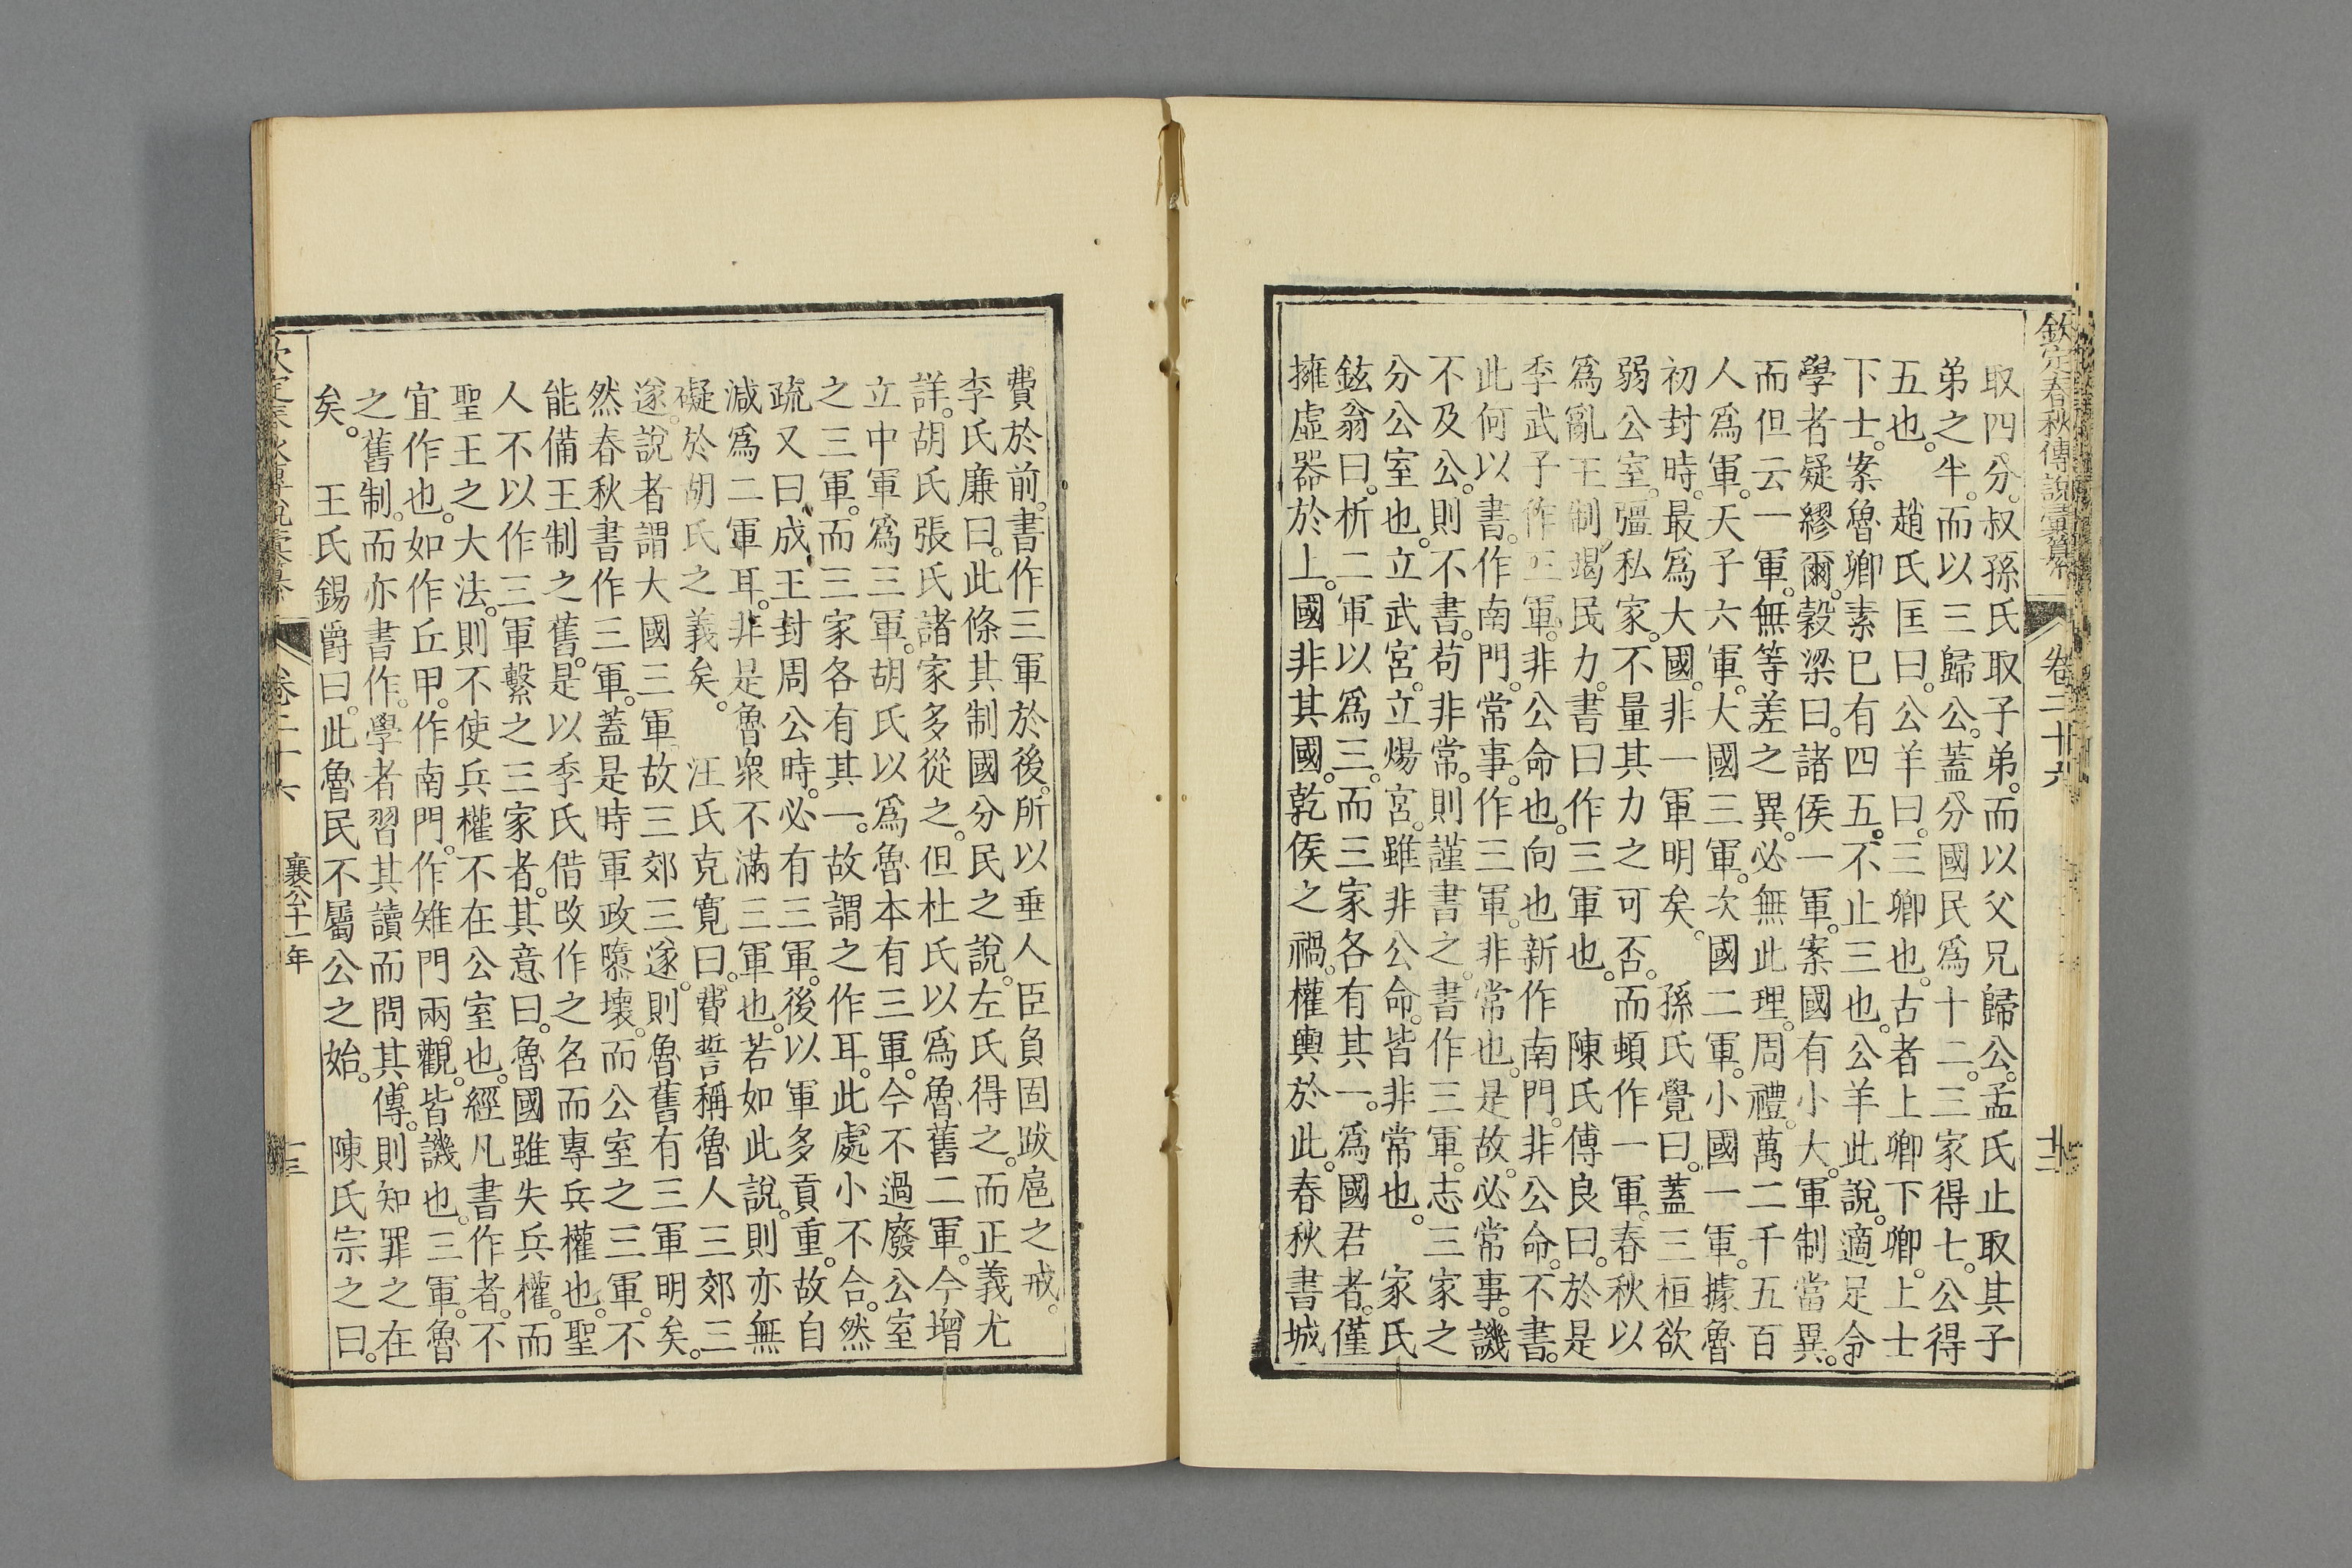 欽定春秋傳說彙纂 卷二十六 十二
取四分。叔孫氏取子弟。而以父兄歸公。孟氏止取其子
弟之半。而以三歸公。蓋分國民爲十二。三家得七。公得
五也。 趙氏匡曰。公羊曰。三卿也。古者上卿下卿。上士
下士。案魯卿素已有四五。不止三也。公羊此說。適足令
學者疑繆爾。穀梁曰。諸侯一軍。案國有小大。軍制當異。
而但云一軍。無等差之異。必無此理。周禮。萬二千五百
人爲軍。天子六軍。大國三軍。次國二軍。小國一軍。據魯
初封時。最爲大國。非一軍明矣。 孫氏覺曰。蓋三桓欲
弱公室。彊私家。不量其力之可否。而頓作一軍。春秋以
爲亂王制。竭民力。書曰作三軍也。 陳氏傅良曰。於是
季武子作三軍。非公命也。向也新作南門。非公命。不書。
此何以書。作南門。常事。作三軍。非常也。是故。必常事。譏
不及公。則不書。苟非常。則謹書之。書作三軍。志三家之
分公室也。立武宮。立煬宮。雖非公命。皆非常也。 家氏
鉉翁曰。析二軍以爲三。而三家各有其一。爲國君者。僅
擁虛器於上。國非其國。乾侯之禍。權輿於此。春秋書城
費於前。書作三軍於後。所以垂人臣負固跋扈之戒。
李氏廉曰。此條其制國分民之說。左氏得之。而正義尤
詳。胡氏張氏諸家多從之。但杜氏以爲魯舊二軍。今增
立中軍爲三軍。胡氏以爲魯本有三軍。今不過廢公室
之三軍。而三家各有其一。故謂之作耳。此處小不合。然
疏又曰。成王封周公時。必有三軍。後以軍多貢重。故自
減爲二軍耳。非是魯衆不滿三軍也。若如此說。則亦無
礙於胡氏之義矣。 汪氏克寬曰。費誓稱魯人三郊三
遂。說者謂大國三軍故三郊三遂。則魯舊有三軍明矣。
然春秋書作三軍。蓋是時軍政隳壞。而公室之三軍。不
能備王制之舊。是以季氏借攺作之名而專兵權也。聖
人不以作三軍繫之三家者。其意曰。魯國雖失兵權。而
聖王之大法。則不使兵權不在公室也。經凡書作者。不
宜作也。如作丘甲。作南門。作雉門兩觀。皆譏也。三軍。魯
之舊制。而亦書作。學者習其讀而問其傳。則知罪之在
矣。 王氏錫爵曰。此魯民不屬公之始。 陳氏宗之曰。
欽定春秋傳說彙纂 卷二十六 襄公十一年 十三